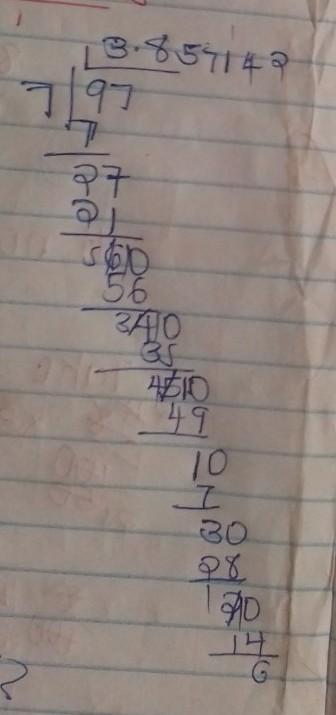 13.857142
7 97
7
27
21
5610
56
3410
35
4510
49
10
7
30
28
1210
14
6
?